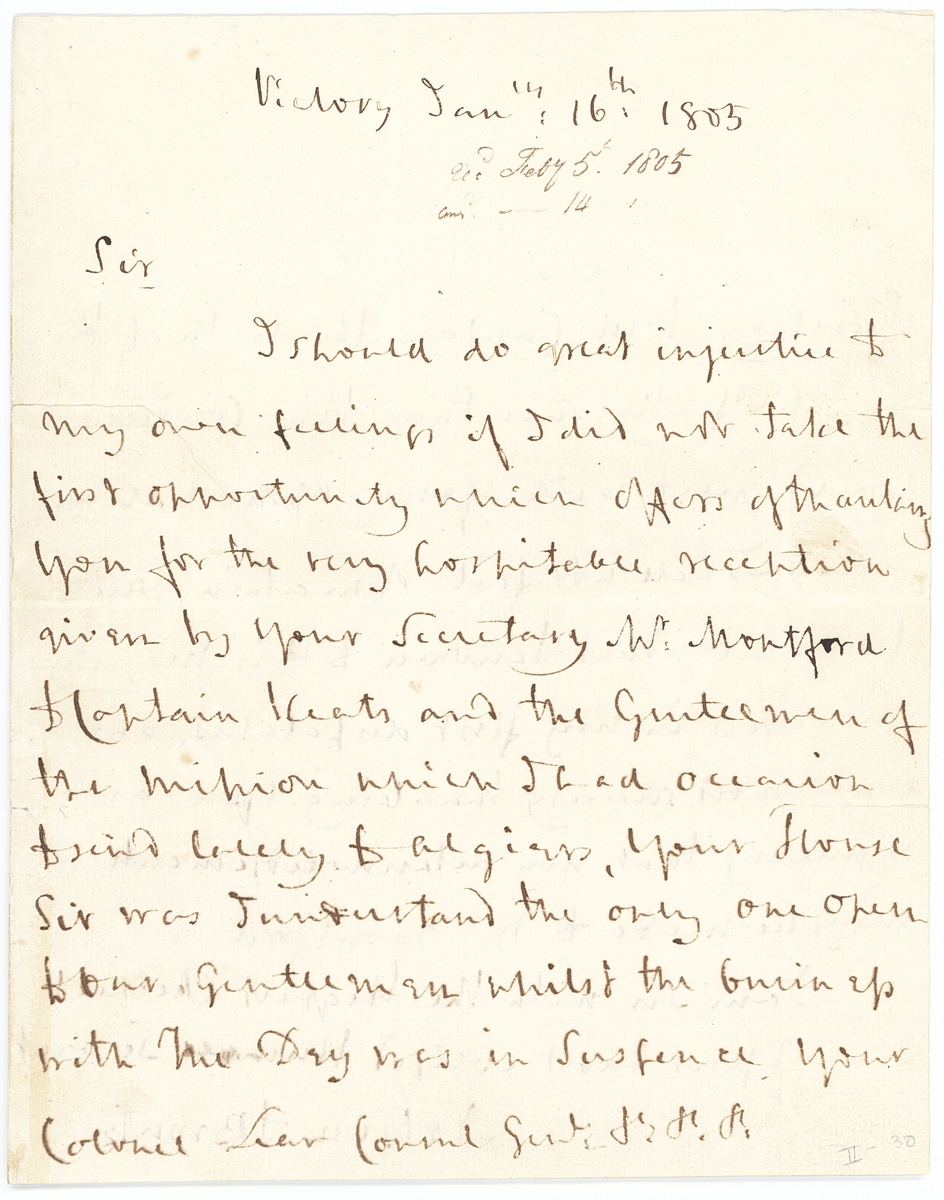 Victory Jan^ry: 16^th: 1805
rec^d Feby 5^t. 1805
ans^d — 14
Sir
I should do great injustice to
my own feelings if I did not take the
first opportunity which offers of thanking
you for the very hospitable reception
given by your Secretary Mr: Montford
to Captain Keats and the Gentlemen of
the Mission which I had occasion
to send lately to Algiers, Your House
Sir was I understand the only one open
to our Gentlemen whilst the business
with The Dey was in Suspence your
Colonel Lear Consul Gen^l: &c. &c. &c.
II - 30